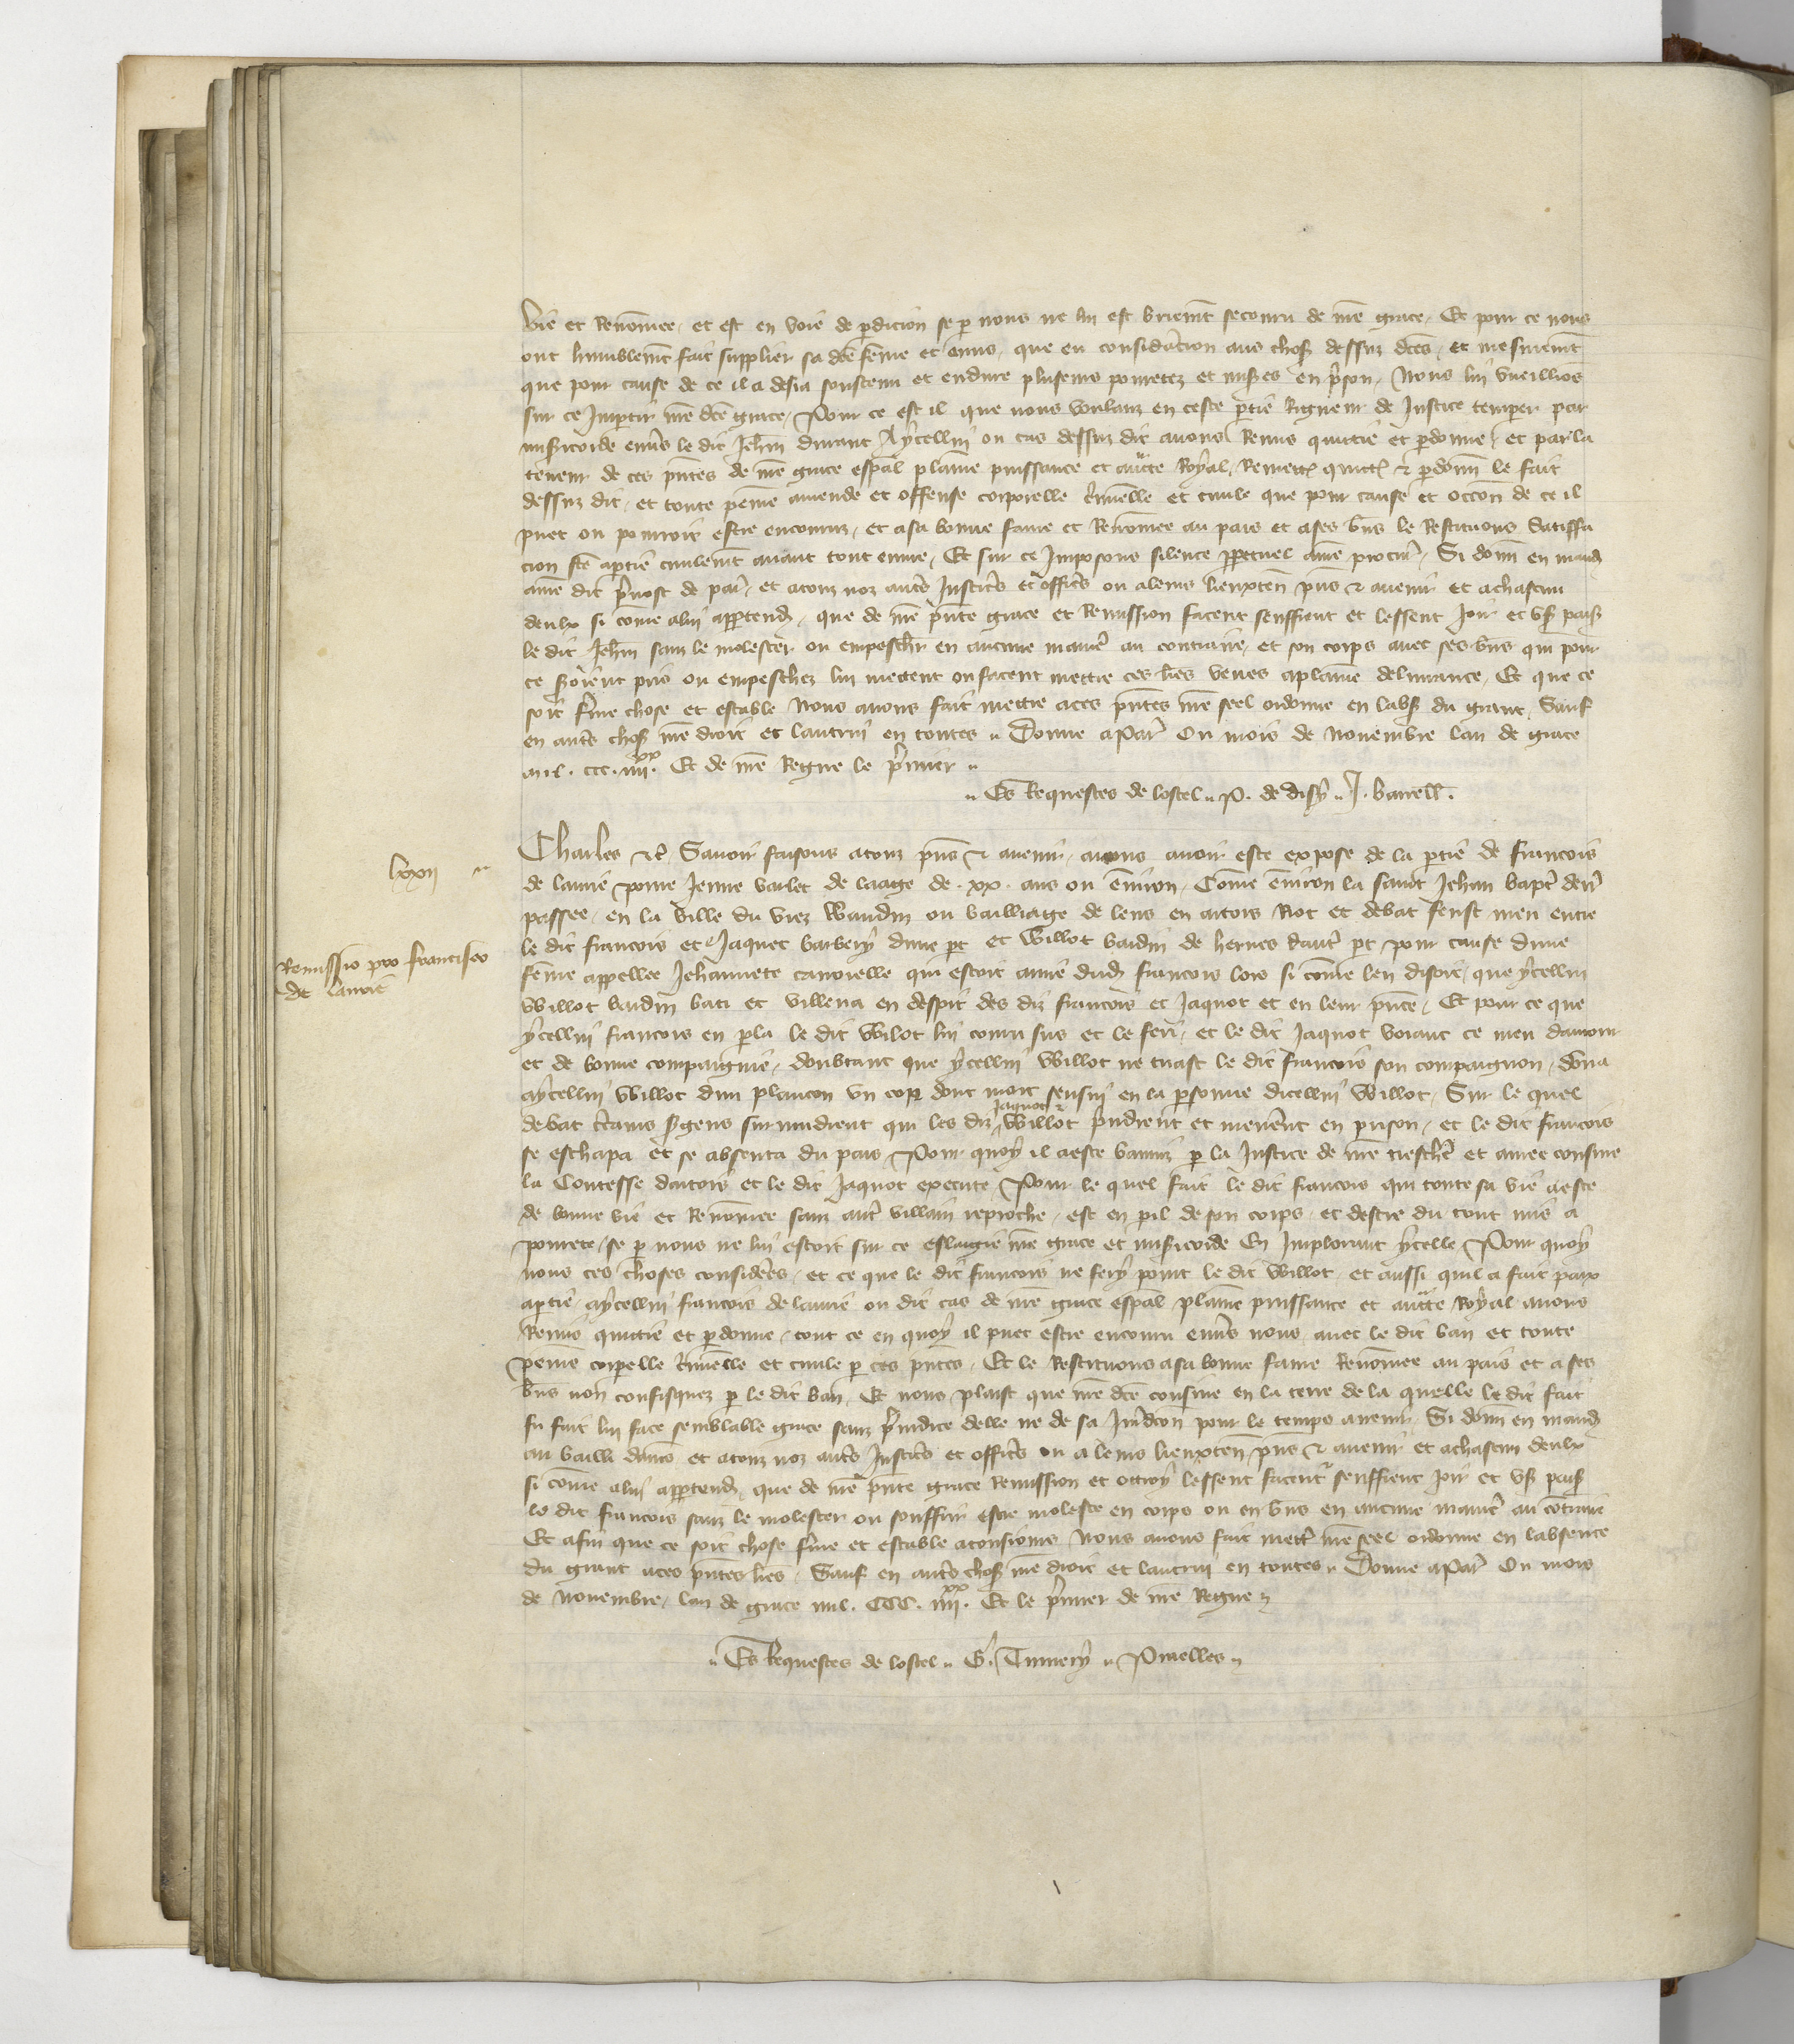 vie et Renomee, et est en voie de pdicion se p nous ne lui est briemt secouru de nre grace, Et pour ce nous
ont humblemt fait supplier sa dce feme et amis, que eu considacion aus chos dessuz dces, et mesmemt
que pour cause de ce il a desia soustenu et endure plusenrs pouretez et mises en prison, Nous lui vueillios
sur ce Impartir nre dce grace, Pour ce est il que nous voulanz en ceste partie Rigueur de Justice temper par
misicorde envs le dit Jehn durant Aycellui ou cas dessuz dit auons Remis quittie et pdonne, et par la
teneur de ces pntes de nre grace espal plaine puissance et aucte Royal, Remett quitt & pdonn le fait
dessuz dit, et toute peine amende et offense corporelle criminelle et ciuile que pour cause et occon de ce il
puet ou pourroit estre encouruz, et a sa bonne fame et Renomee au pais et a ses bns le Restituons Satiffa
cion fce a ptie ciuilemt auant tout euure, Et sur ce Imposons silence ppetuel a nre procur, Si donn en mand
a nre dit preuost de par, et a touz noz autrs Justicrs et officrs ou a leurs lieuxten pns & auenir et a chascun
deulx si come a lui apptendr, que de nre pnte grace et Remission facent seuffrent et lessent Joir et us paisi
le dit Jehn sanz le molester ou empeschr en aucune manier au contraire, et son corps auec ses bns qui pour
ce soient pris ou empeschez lui mettent ou facent mettre ces lres veues a plaine deliurance, Et que ce
soit ferme chose et estable Nous auons fait mettre a ces pntes nre seel ordonne en labs du grant, Sauf
en autrs chos nre droit et lautrui en toutes Donne a Par Ou mois de Nouembre lan de grace
mil. ccc. iiiixx. Et de nre Regne le premier
Es Requestes de lostel P. de disy J. barrell.
lxxii
Charles &c. Sauoir faisons a touz pns & auenir, auons auoir este expose de la ptie de francois
de lanrie poure Jeune varlet de laage de .xx. ans ou enuiron, Come enuiron la saint Jehan bapte dern
passee, en la ville du viez Wandin ou bailliage de lens en artois Riot et debat feust meu entre
Remissio pro francisco
de lanrie
le dit francois et Jaquet barbery dune pt et Willot baidin de hernes dautr pt pour cause dune
feme appellee Jehannete canorelle qui estoit amie dud francois lors si come len disoit, que ycellui
Willot baidin bati et villena en despit des diz francois et Jaquot et en leur pnce, Et pour ce que
ycellui francois en pla le dit Wilot lui couru sus et le feri, et le dit Jaquot voiant ce meu damour
et de bonne compaignie, doubtant que ycellui Willot ne tuast le dit francois son compaignon, dona
a ycellui Willot dun plancon un cop dont mort sensui en la psonne dicellui Willot, Sur le quel
Jaquot &
debat crtains sgens suruindrent qui les diz Willot prindrent et menerent en prison, et le dit francois
se eschapa et se absenta du pais Pour quoy il a este baniz p la Justice de nre treschre et amee cousine
la Contesse dartois et le dit Jaquot execute Pour le quel fait le dit francois qui toute sa vie a este
de bonne vie et Renomee sanz autr villain reproche, est en pil de son corps et destre du tout mis a
pourete, se p nous ne lui estoit sur ce eslargie nre grace et misicorde En Implorant ycelle, Pour quoy
nous ces choses considerees, et ce que le dit francois ne fery point le dit Willot, et aussi quil a fait paix
a ptie, aycellui francois de lanrie ou dit cas de nre grace espal plaine puissance et aucte Royal auons
Remis quittie et pdonne, tout ce en quoy il puet estre encouru envs nous, auec le dit ban et toute
peine corpelle criminelle et ciuile p ces pntes, Et le Restituons a sa bonne fame Renomee au pais et a ses
bns non confisquez p le dit ban, Et nous plaist que nre dce cousine en la terre de la quelle le dit fait
fu fait lui face semblable grace sanz preiudice delle ne de sa Jurdcon pour le temps auenir, Si donn en mand
au bailli damiens et a touz noz autrs Justicrs et officrs ou a leurs lieuxten pns & auenir et a chascun deulx
si come a lui apptendr, que de nre pnte grace Remission et ottroy lessent facent seuffrent Joir et us paisi
le dit francois sanz le molester ou souffrir estre moleste en corps ou en bns en aucune manier au contraire
Et afin que ce soit chose ferme et estable a tousiours Nous auons fait mettr nre seel ordonne en labsence
du grant a ces pntes lres, Sauf en autrs chos nre droit et lautrui en toutes Donne a Par Ou mois
de Nouembre, lan de grace mil. CCC. iiiixx. Et le premier de nre Regne
Es Requestes de lostel G. Tumery Pruelles